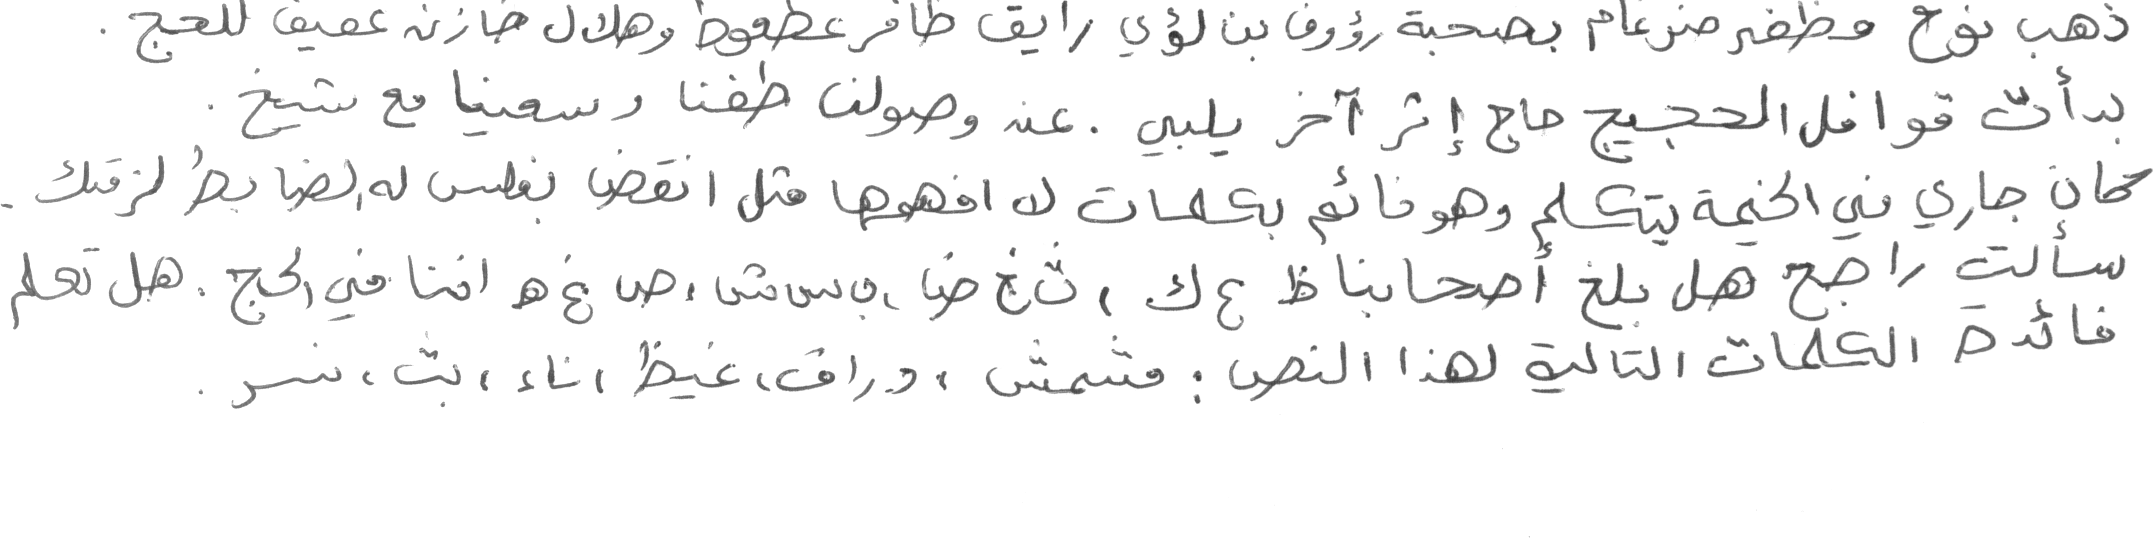 ذهب نوح مظفر ضرغام بصحبة رؤوف بن لؤي رايق ظافر عطعوط وهلال خازن عفيف للحج .
بدأت قوافل الحجيج حاج إثر آخر يلبي . عند وصولنا طفنا وسعينا مع شيخ .
كان جاري في الخيمة يتكلم وهو نائم بكلمات لا افهمها مثل انقض بغلس له الضابط لزقك .
سألت راجح هل بلغ أصحابنا ظ ع ك ، ث غ ض ، ب س ش ، ص غ ه اننا في الحج . هل تعلم
فائدة الكلمات التالية لهذا النص : مشمش ، دراق ، غيظ ، ناء ، بث ، نسر .